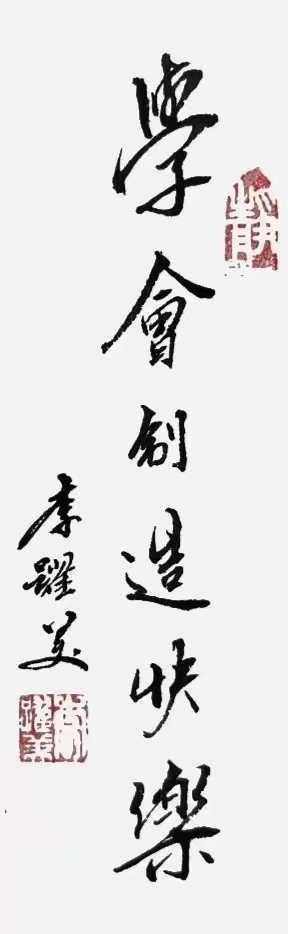 學會創造快樂
李躍美